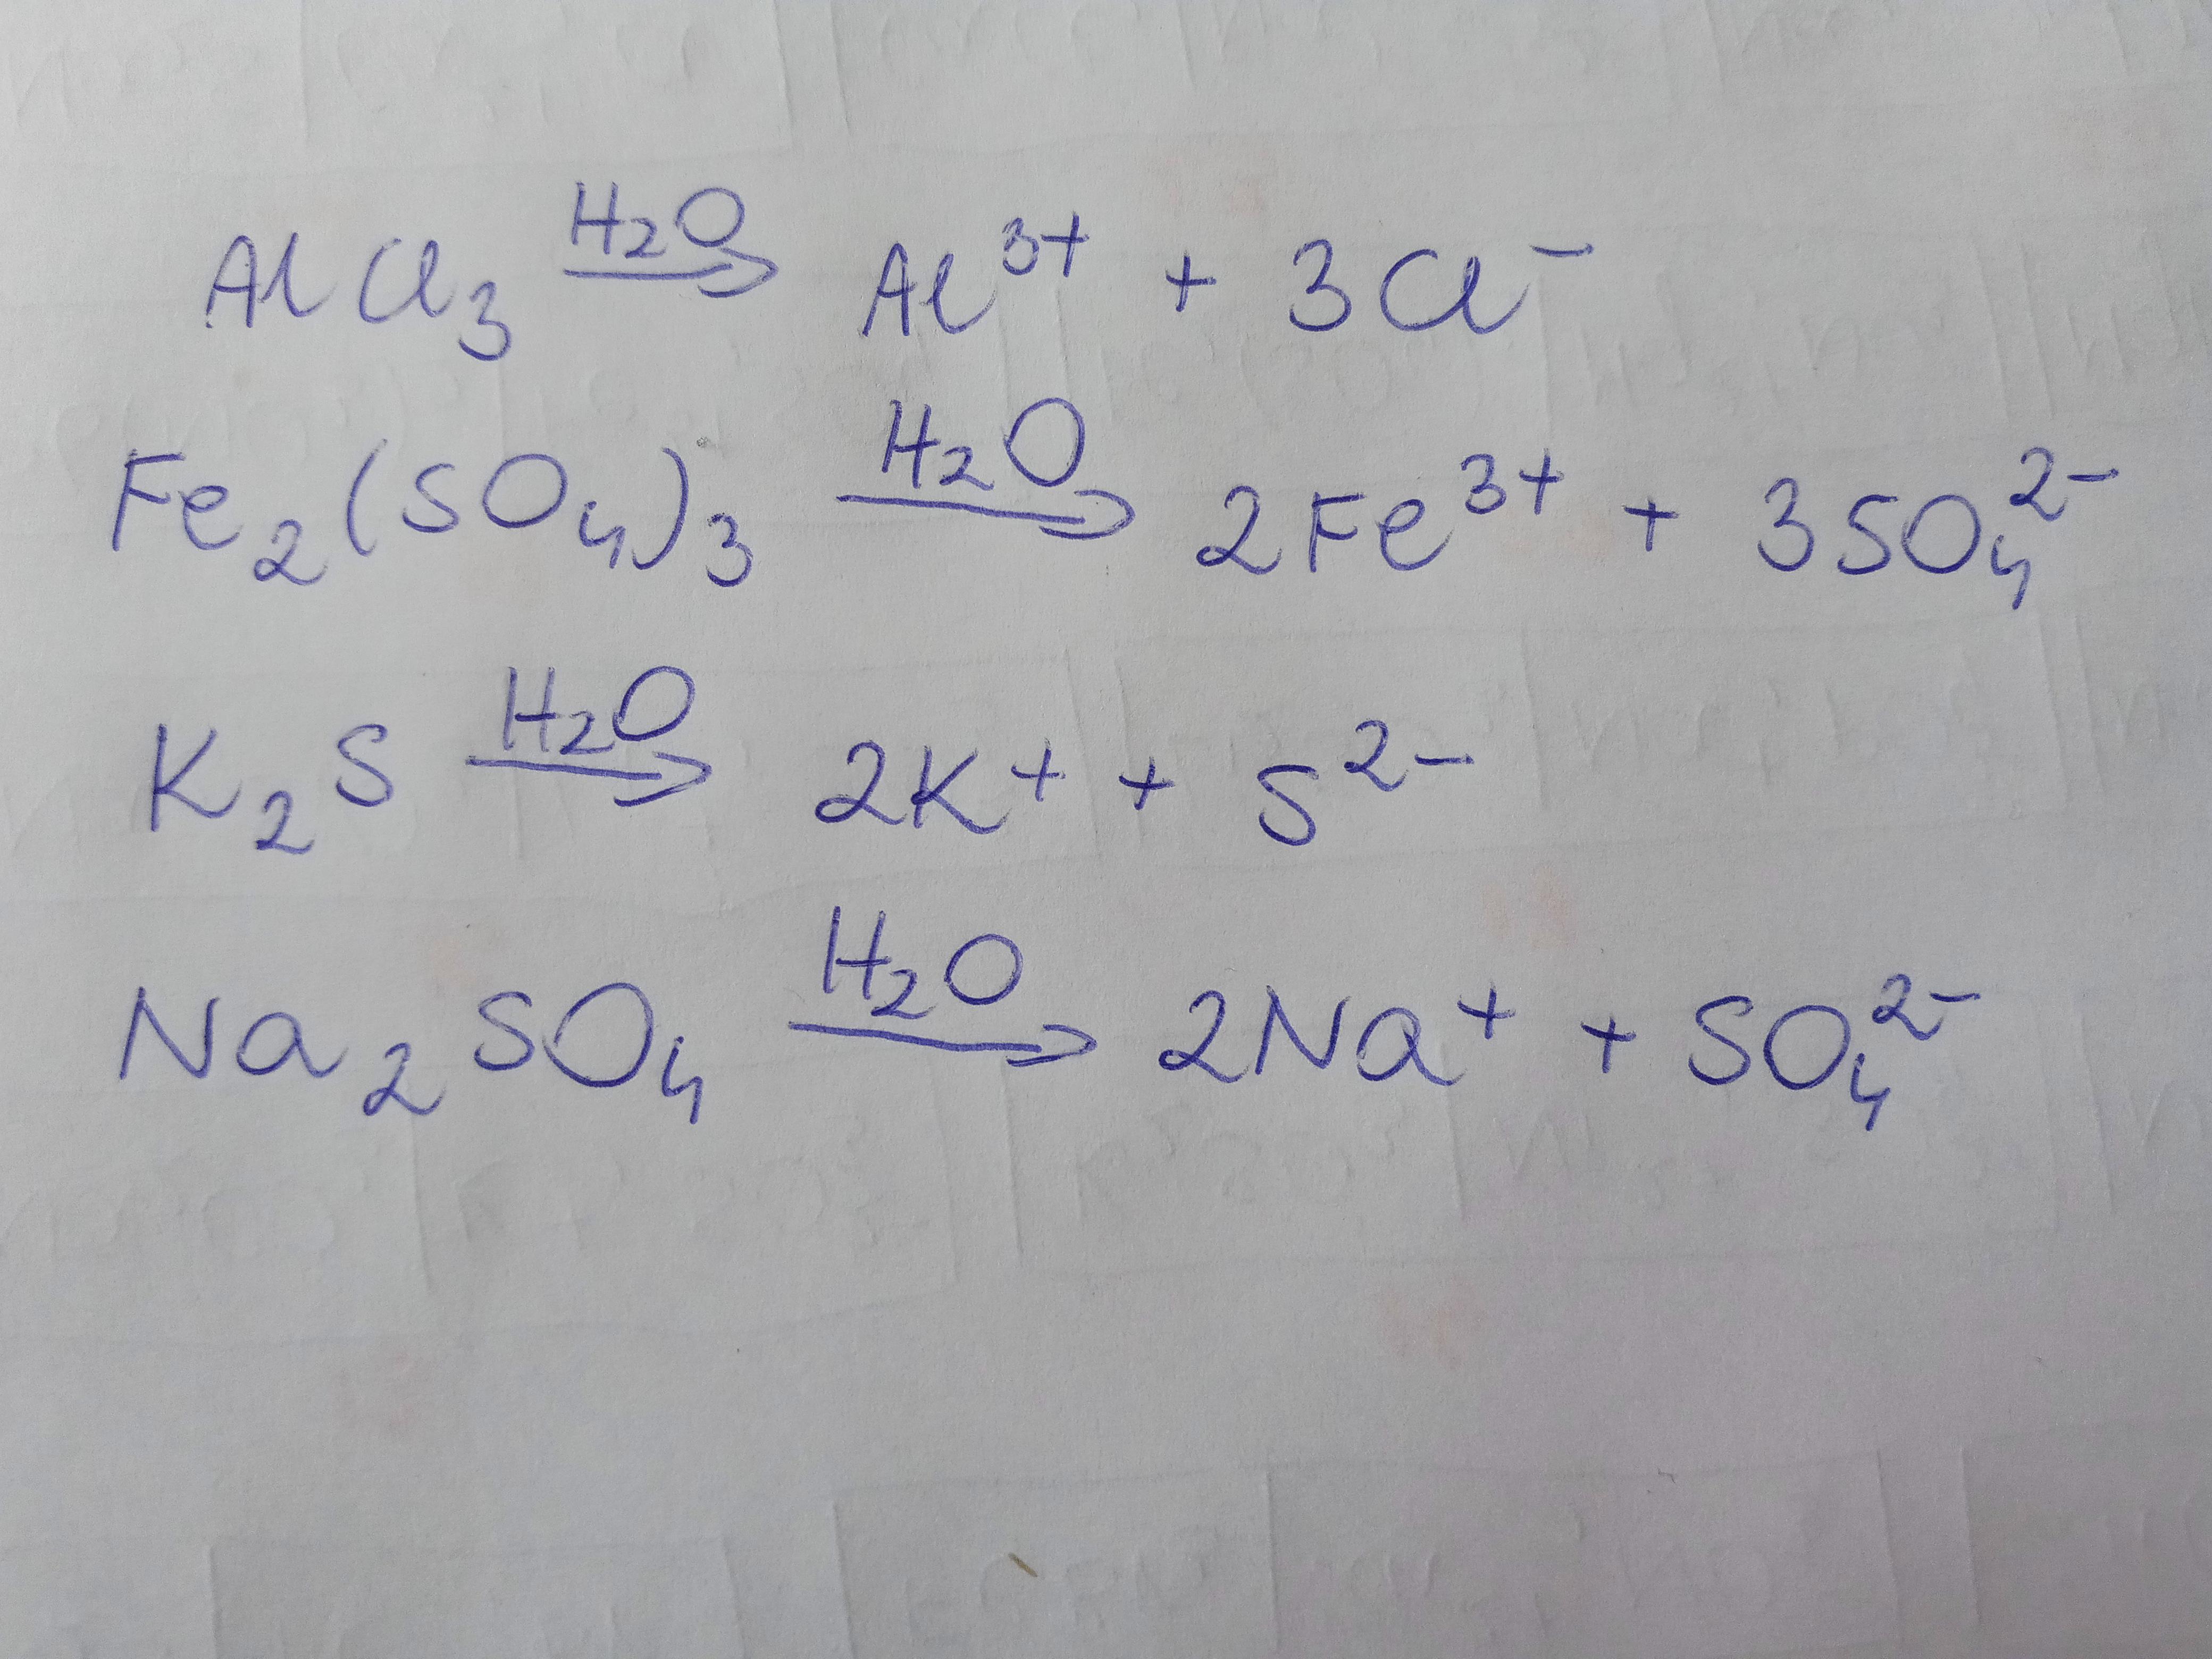 AlCl₃ H₂O→ Al³⁺ + 3Cl⁻
Fe₂(SO₄)₃ H₂O→ 2Fe³⁺ + 3SO₄²⁻
K₂S H₂O→ 2K⁺ + S²⁻
Na₂SO₄ H₂O→ 2Na⁺ + SO₄²⁻